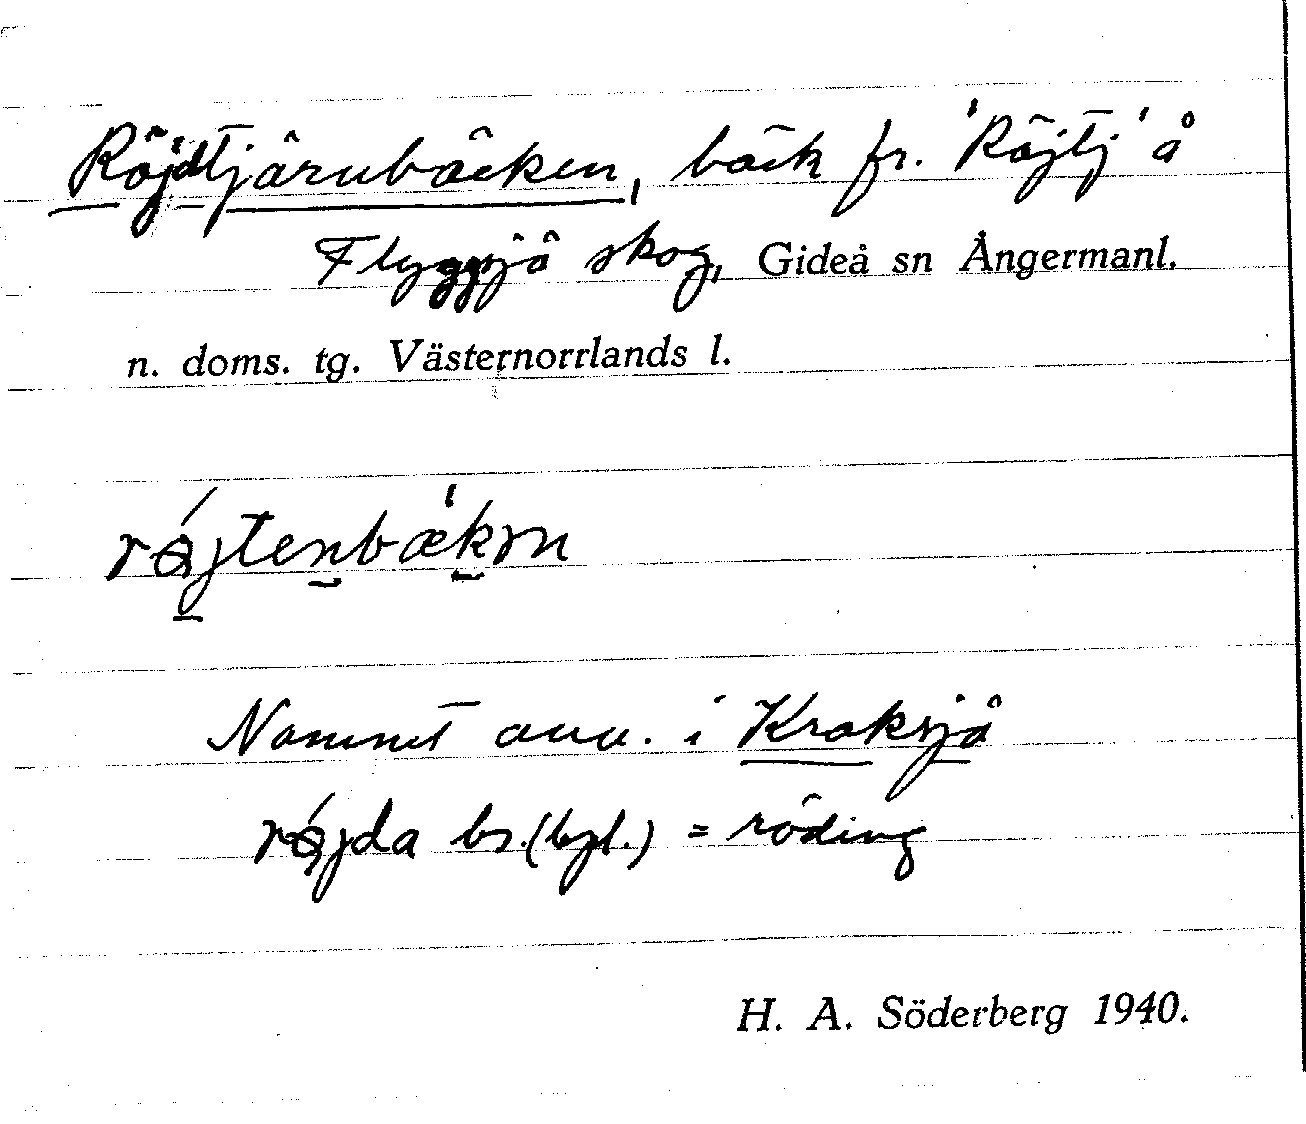 Röjdtjärnbäcken, bäck fr. 'Röjtj' å
Flyggsjö skog, Gideå sn Ångermanl.
n. doms. tg. Västernorrlands l.
röjtenbækņ
Namnet anv. i Kraksjö
röjda bs. (bgl.) = röding
H. A. Söderberg 1940.